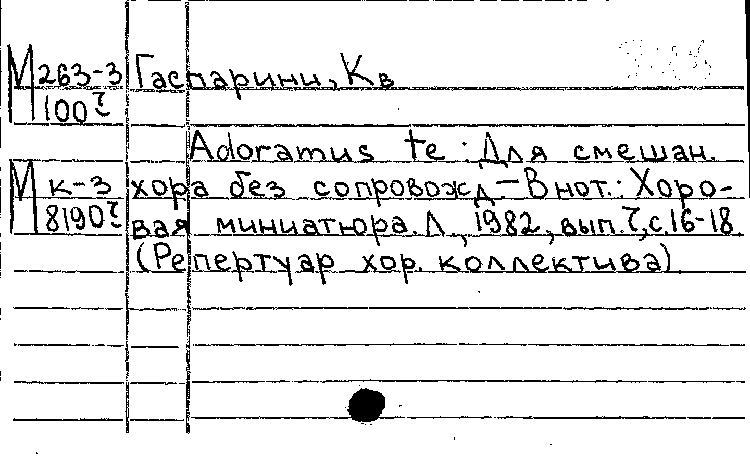 М 263-3 Гаспарини, Кв
100
Adoramus te. Для смешан.
М к-3 хора без сопровожд.— В нот.: Хоро-
8190 вая миниатюра. Л., 1982, вып. 7, с. 16-18
(Репертуар хор. коллектива)